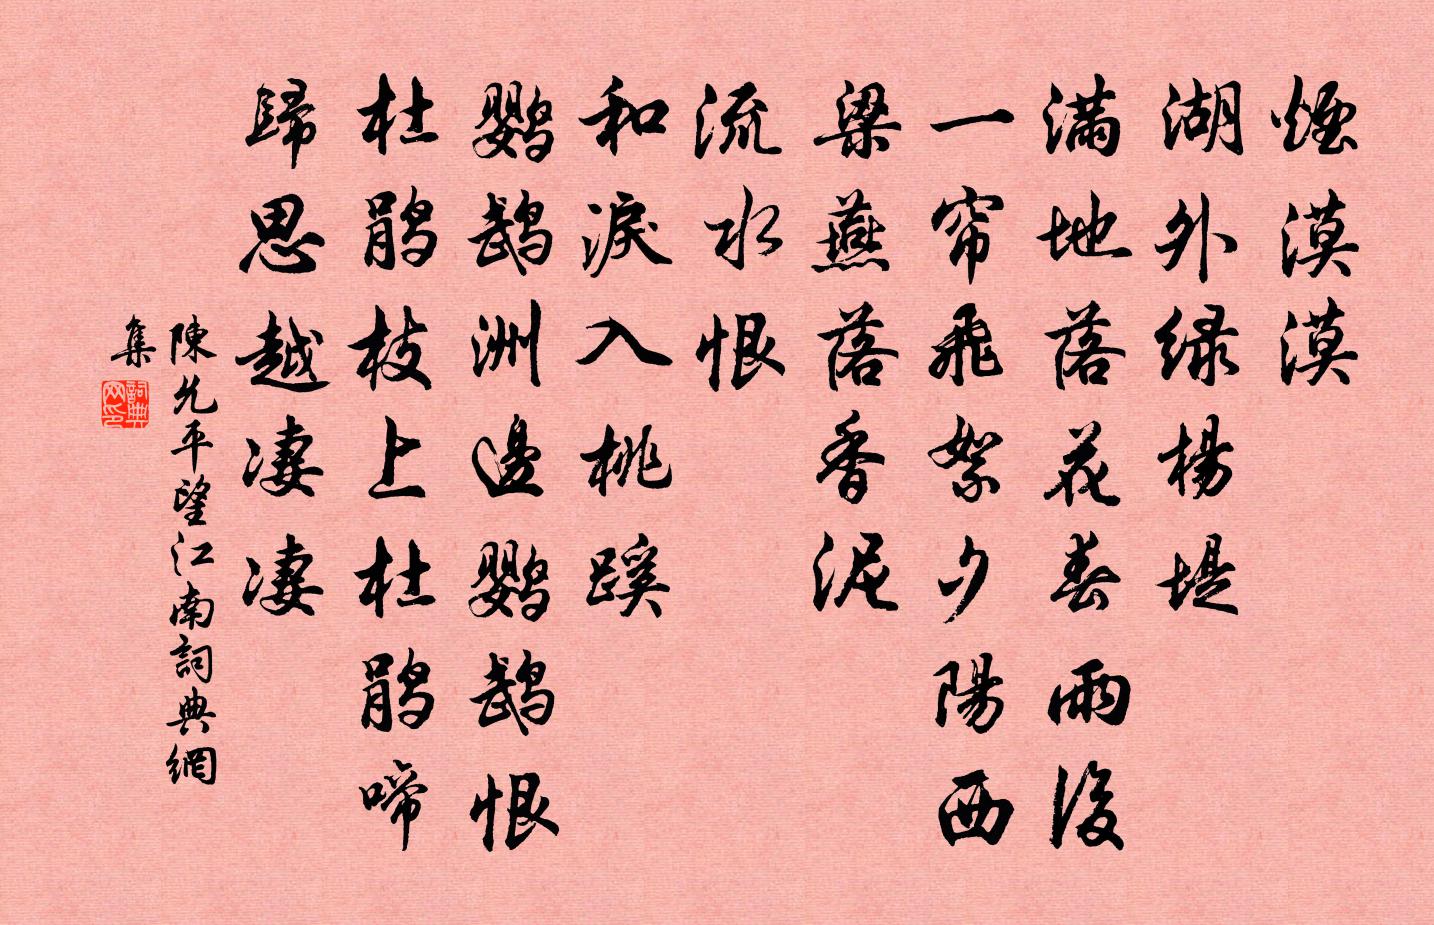 煙漠漠
湖外绿楊堤
满地落花春雨後
一帘飛絮夕陽西
梁燕落香泥
流水恨
和淚入桃蹊
鹦鹉洲邊鹦鹉恨
杜鹃枝上杜鹃啼
歸思越凄凄
陳允平望江南詞典網
集
詞典网印